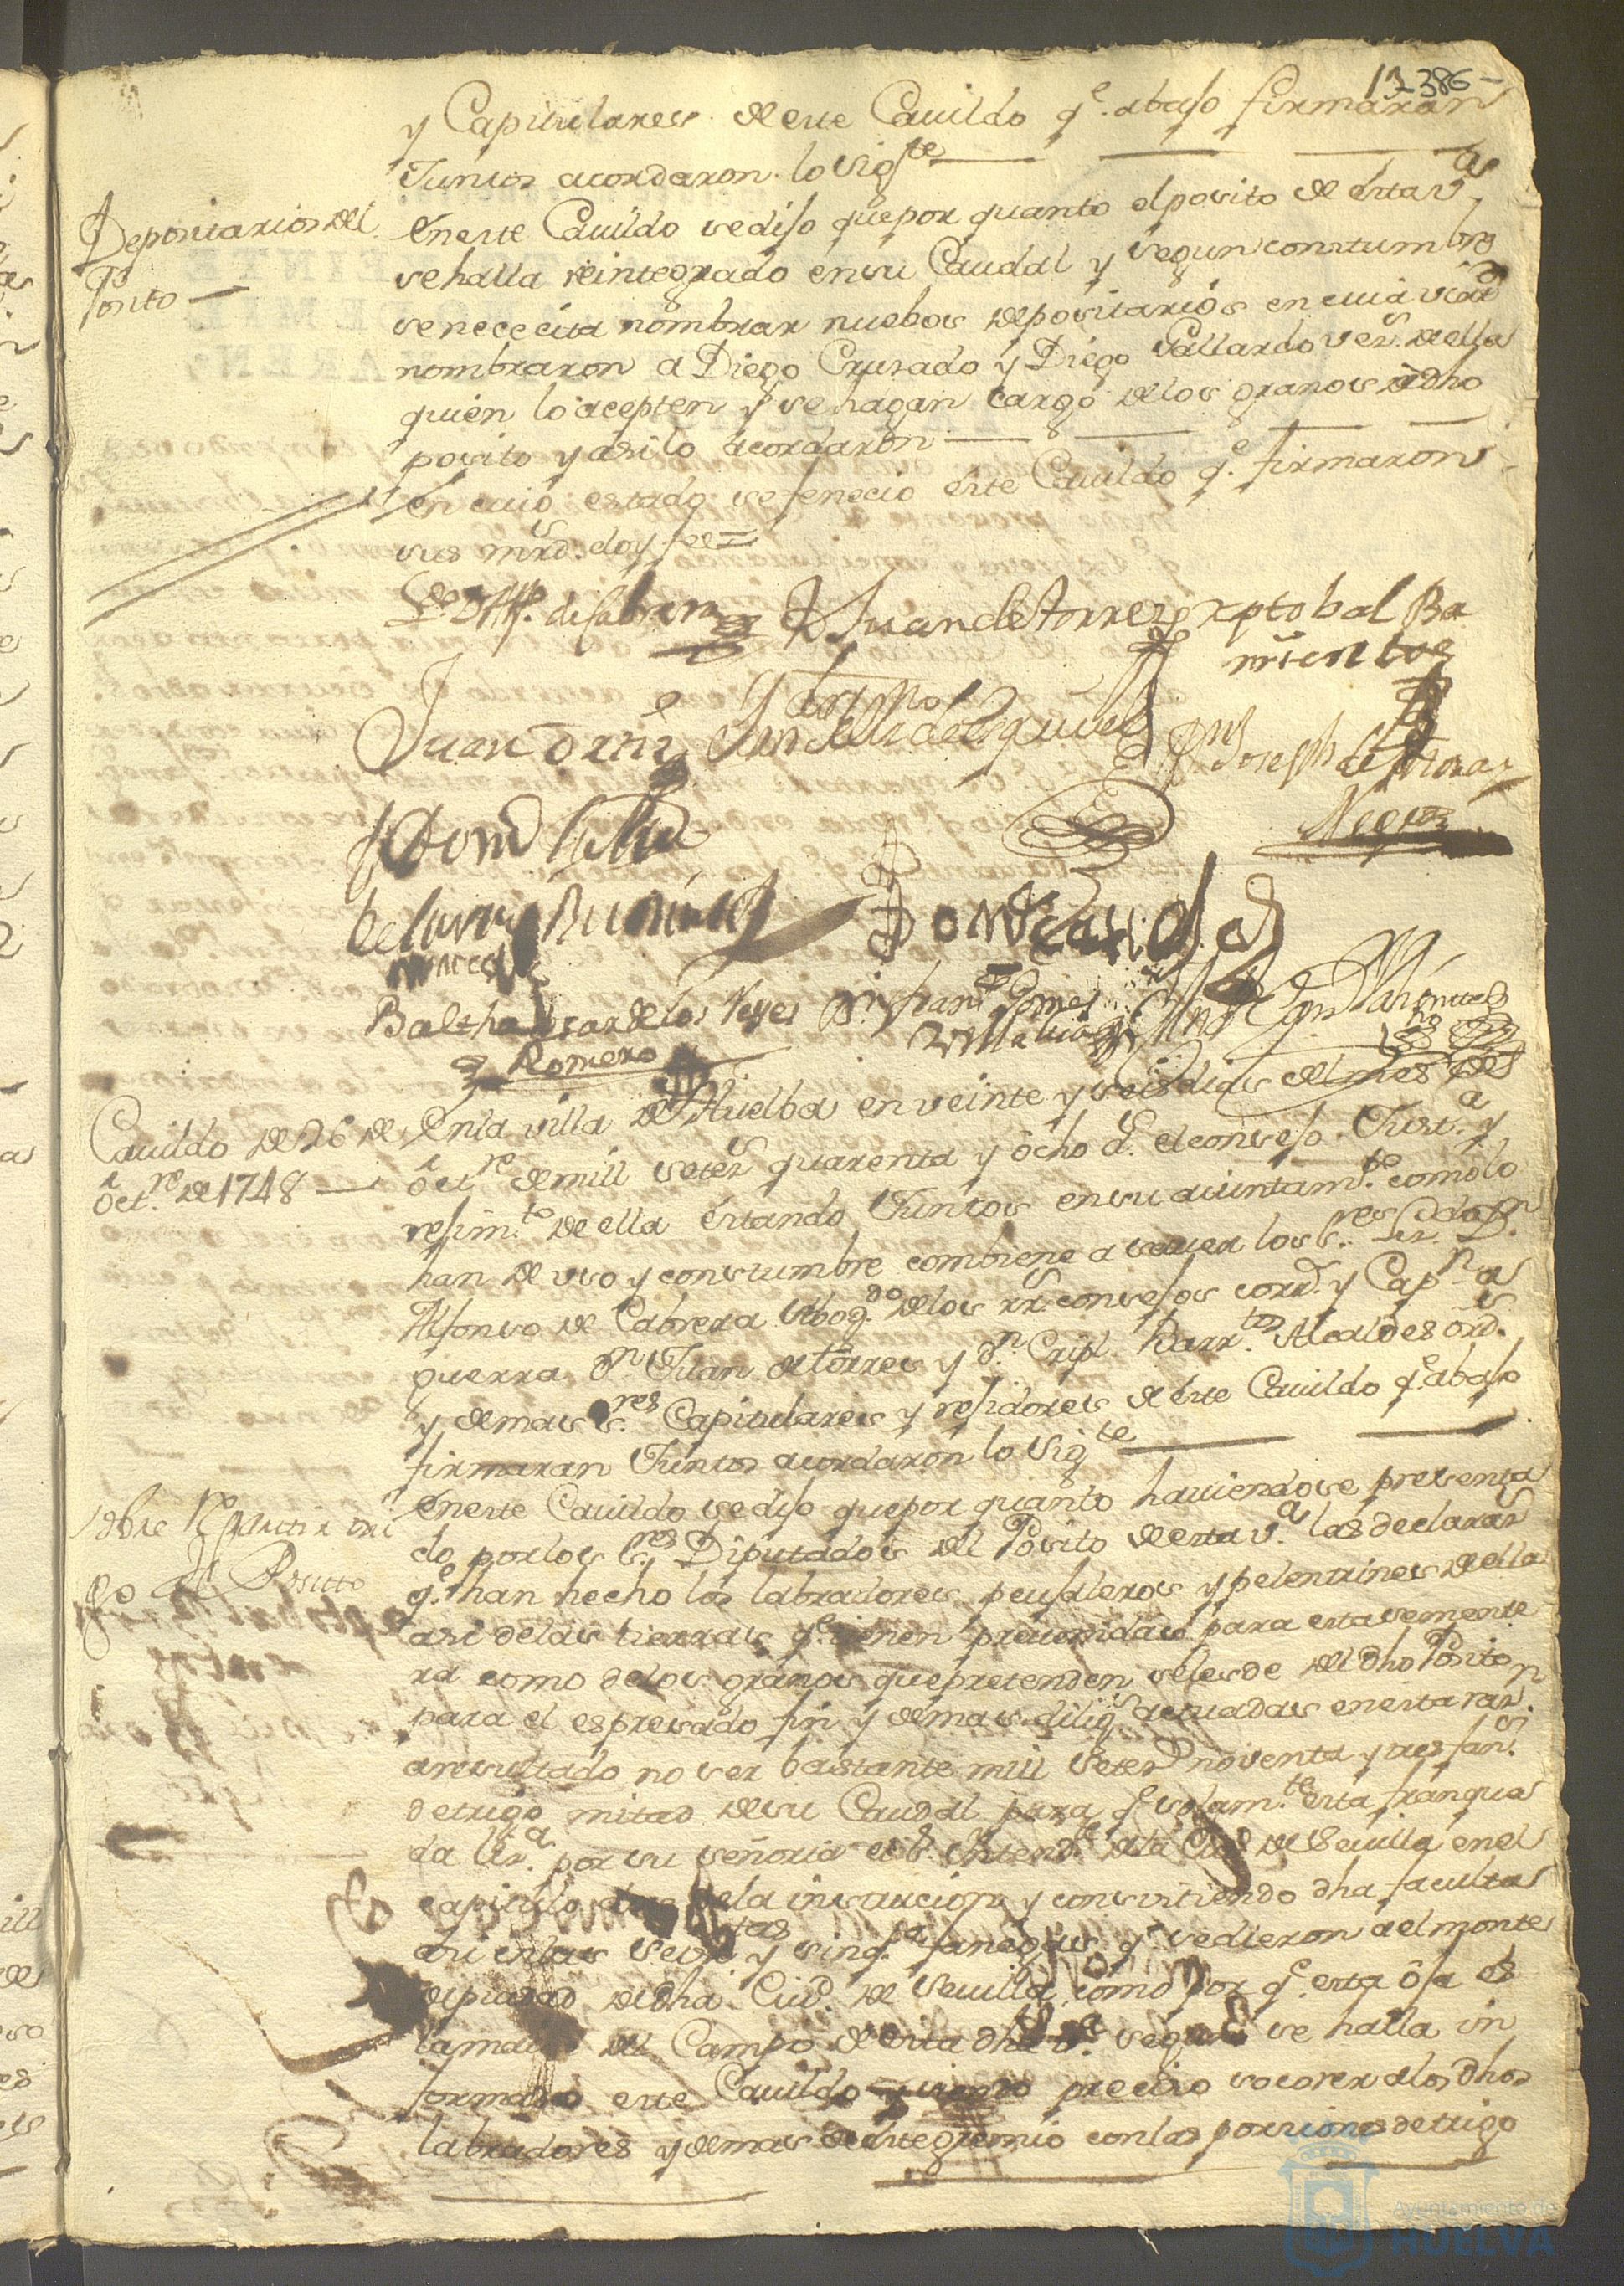 12 386
y Capitulares de este Cavildo q.e abajo firmaran
Juntos acordaron lo Sig.te
Depositarios del
Posito
En este Cavildo se dijo que por quanto el posito de esta v.a
se halla reintegrado en su Caudal y segun constumbre
se nececita nombrar nuebos depositarios en cuia virtd
nombraron a Diego Crusado y Diego Gallardo vez.s de ella
quien lo acepten y se hagan cargo de los granos de dho
posito y asi lo acordaron
En cuio estado se fenecio este Cavildo q.e firmaron
sus mrd.s doy fee =
Juan de Torrez xptobal Ba
rrientos
Juan
Joseph de
Negro
Balthasar de los Reyes
Romero
Cavildo de 26 de
Oct.re de 1748
En la villa de Huelba en veinte y seis dias del mes de
Oct.re de mill seters quarenta y ocho a.s el consejo Just.a y
rejim.to de ella estando Juntos en su aiuntam.to como lo
han de uso y constumbre combiene a saver los S.res Lz.do D.n
Alfonso de Cabrera Abog.do de los rr.s consejos corr.d y Cap.n a
guerra D.n Juan de torres y D.n Cripl. Barr.tos Alcaldes ord.s
y demas S.res Capitulares y rejidores de este Cavildo q.e abajo
firmaran Juntos acordaron lo Sig.te
sobre Repartir tri
go del Posito
En este Cavildo se dijo que por quanto haviendose presenta
do por los S.res Diputados del Posito de esta v.a las declaraz.s
q.e han hecho los labradores peujaleros y pelentrines de ella
asi de las tierras q.e tienen prevenidas para esta semente
ra como de los granos que pretenden se les de del dho Posito
para el espresado fin y demas dilig.s actuadas en esta raz.n
a resultado no ser bastante mill seters noventa y tres fan.s
de trigo mitad de su Caudal para q.e solam.te esta franquea
da lis.a por su señoria el S.r Intend.te de la Ciud de Sevilla en el
capitulo de la instrucion y consistiendo dha facultad
en las y sinq.ta fanegas q.e se dieron a el monte
de piadad de dha Ciud. de Sevilla como por q.e esta
del Campo de esta dha v.a segun se halla in
formado este Cavildo y siendo preciso socorer a los dhos
labradores y demas de este gremio con las porsiones de trigo
Ayuntamiento de
HUELVA